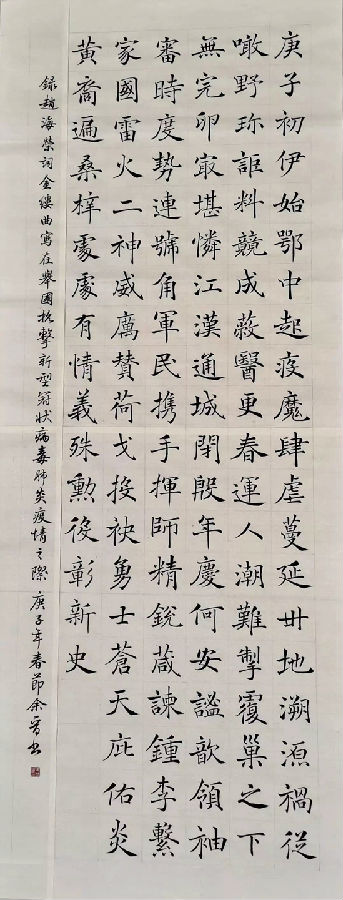 庚子初伊始鄂中起疫魔肆虐蔓延卅地溯源禍從
噉野珎詎料競成蔌醫更春運人潮難掣覆巢之下
無完卵冣堪憐江漢通城閉殷年慶何安謐歆領袖
審時度勢連號角軍民携手揮師精銳蕆諫鍾李繫
家國雷火二神威厲贊荷戈投袂勇士蒼天庇佑炎
黃裔遍桑梓處處有情義殊勳後彰新史
録趙海榮詞金縷曲寫在舉國抗擊新型冠狀病毒肺炎疫情之際 庚子年春節余晋书